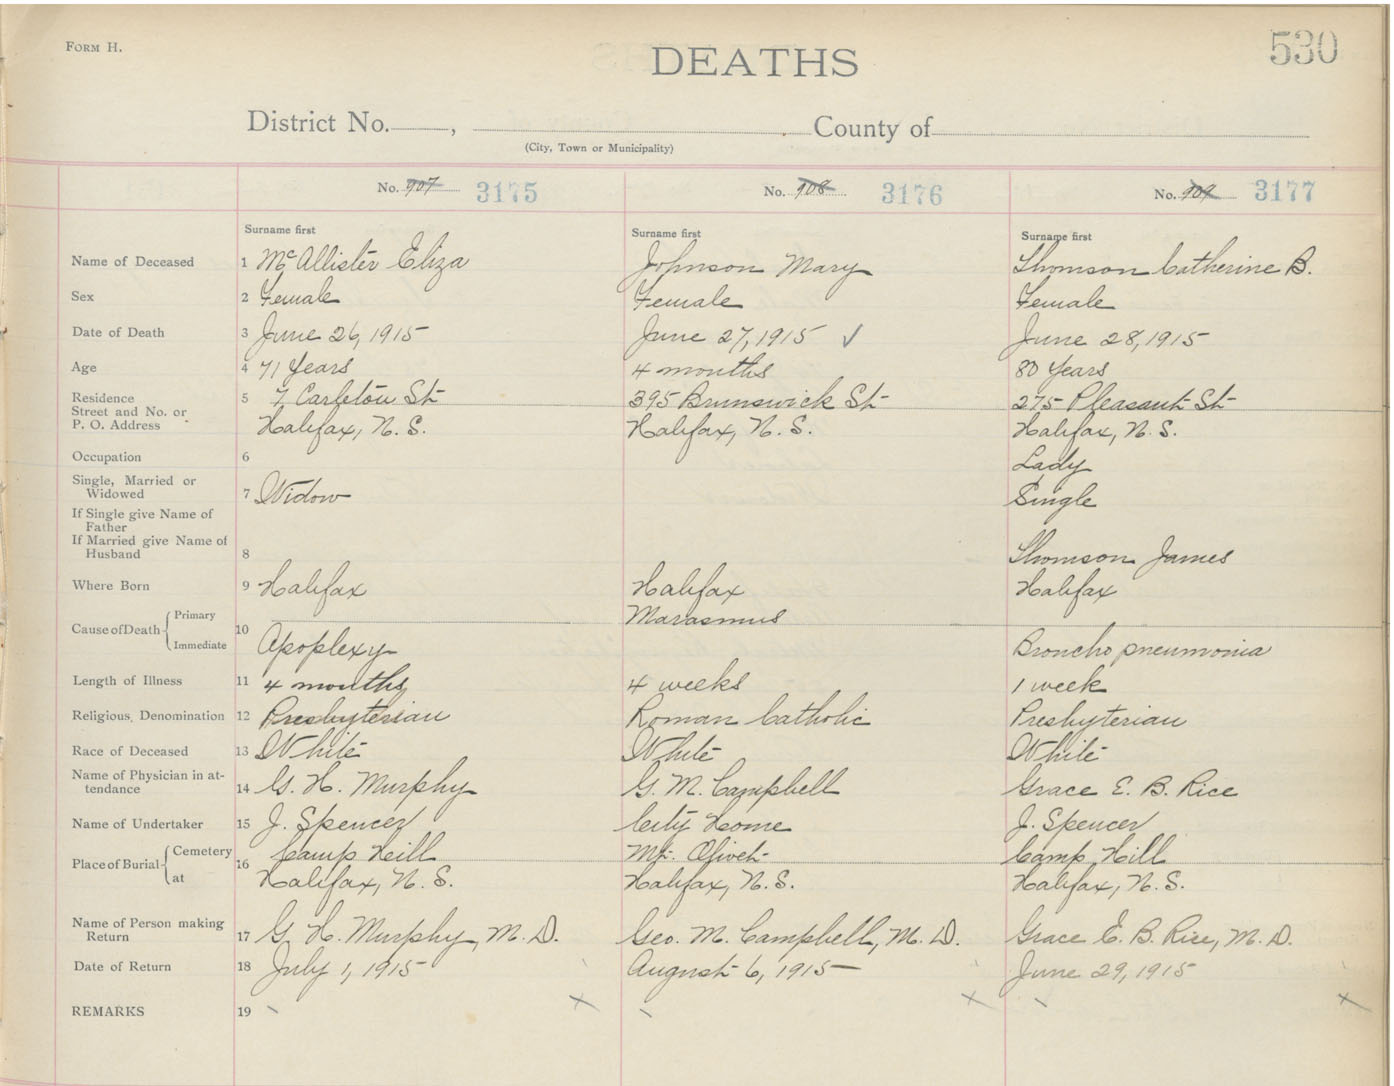 FORM H.
530
DEATHS
District No. , County of
(City, Town or Municipality)
No. 907 3175 No. 908 3176 No. 909 3177
Surname first Surname first Surname first
Name of Deceased 1 McAllister Eliza Johnson Mary Thomson Catherine B.
Sex 2 Female Female Female
Date of Death 3 June 26, 1915 June 27, 1915 ✓ June 28, 1915
Age 4 71 Years 4 months 80 Years
Residence 5 7 Carleton St 395 Brunswick St 275 Pleasant St
Street and No. or
P. O. Address Halifax, N. S. Halifax, N. S. Halifax, N. S.
Occupation 6 Lady
Single, Married or
Widowed 7 Widow Single
If Single give Name of
Father
If Married give Name of
Husband 8 Thomson James
Where Born 9 Halifax Halifax Halifax
Cause of Death Primary Marasmus
10
Immediate Apoplexy Broncho pneumonia
Length of Illness 11 4 months 4 weeks 1 week
Religious Denomination 12 Presbyterian Roman Catholic Presbyterian
Race of Deceased 13 White White White
Name of Physician in at-
tendance 14 G. H. Murphy G. M. Campbell Grace E. B. Rice
Name of Undertaker 15 J. Spencer City Home J. Spencer
Place of Burial Cemetery 16 Camp Hill Mt. Olivet Camp Hill
at Halifax, N. S. Halifax, N. S. Halifax, N. S.
Name of Person making
Return 17 G. H. Murphy, M. D. Geo. M. Campbell, M. D. Grace E. B. Rice, M. D.
Date of Return 18 July 1, 1915 August 6, 1915 June 29, 1915
REMARKS 19